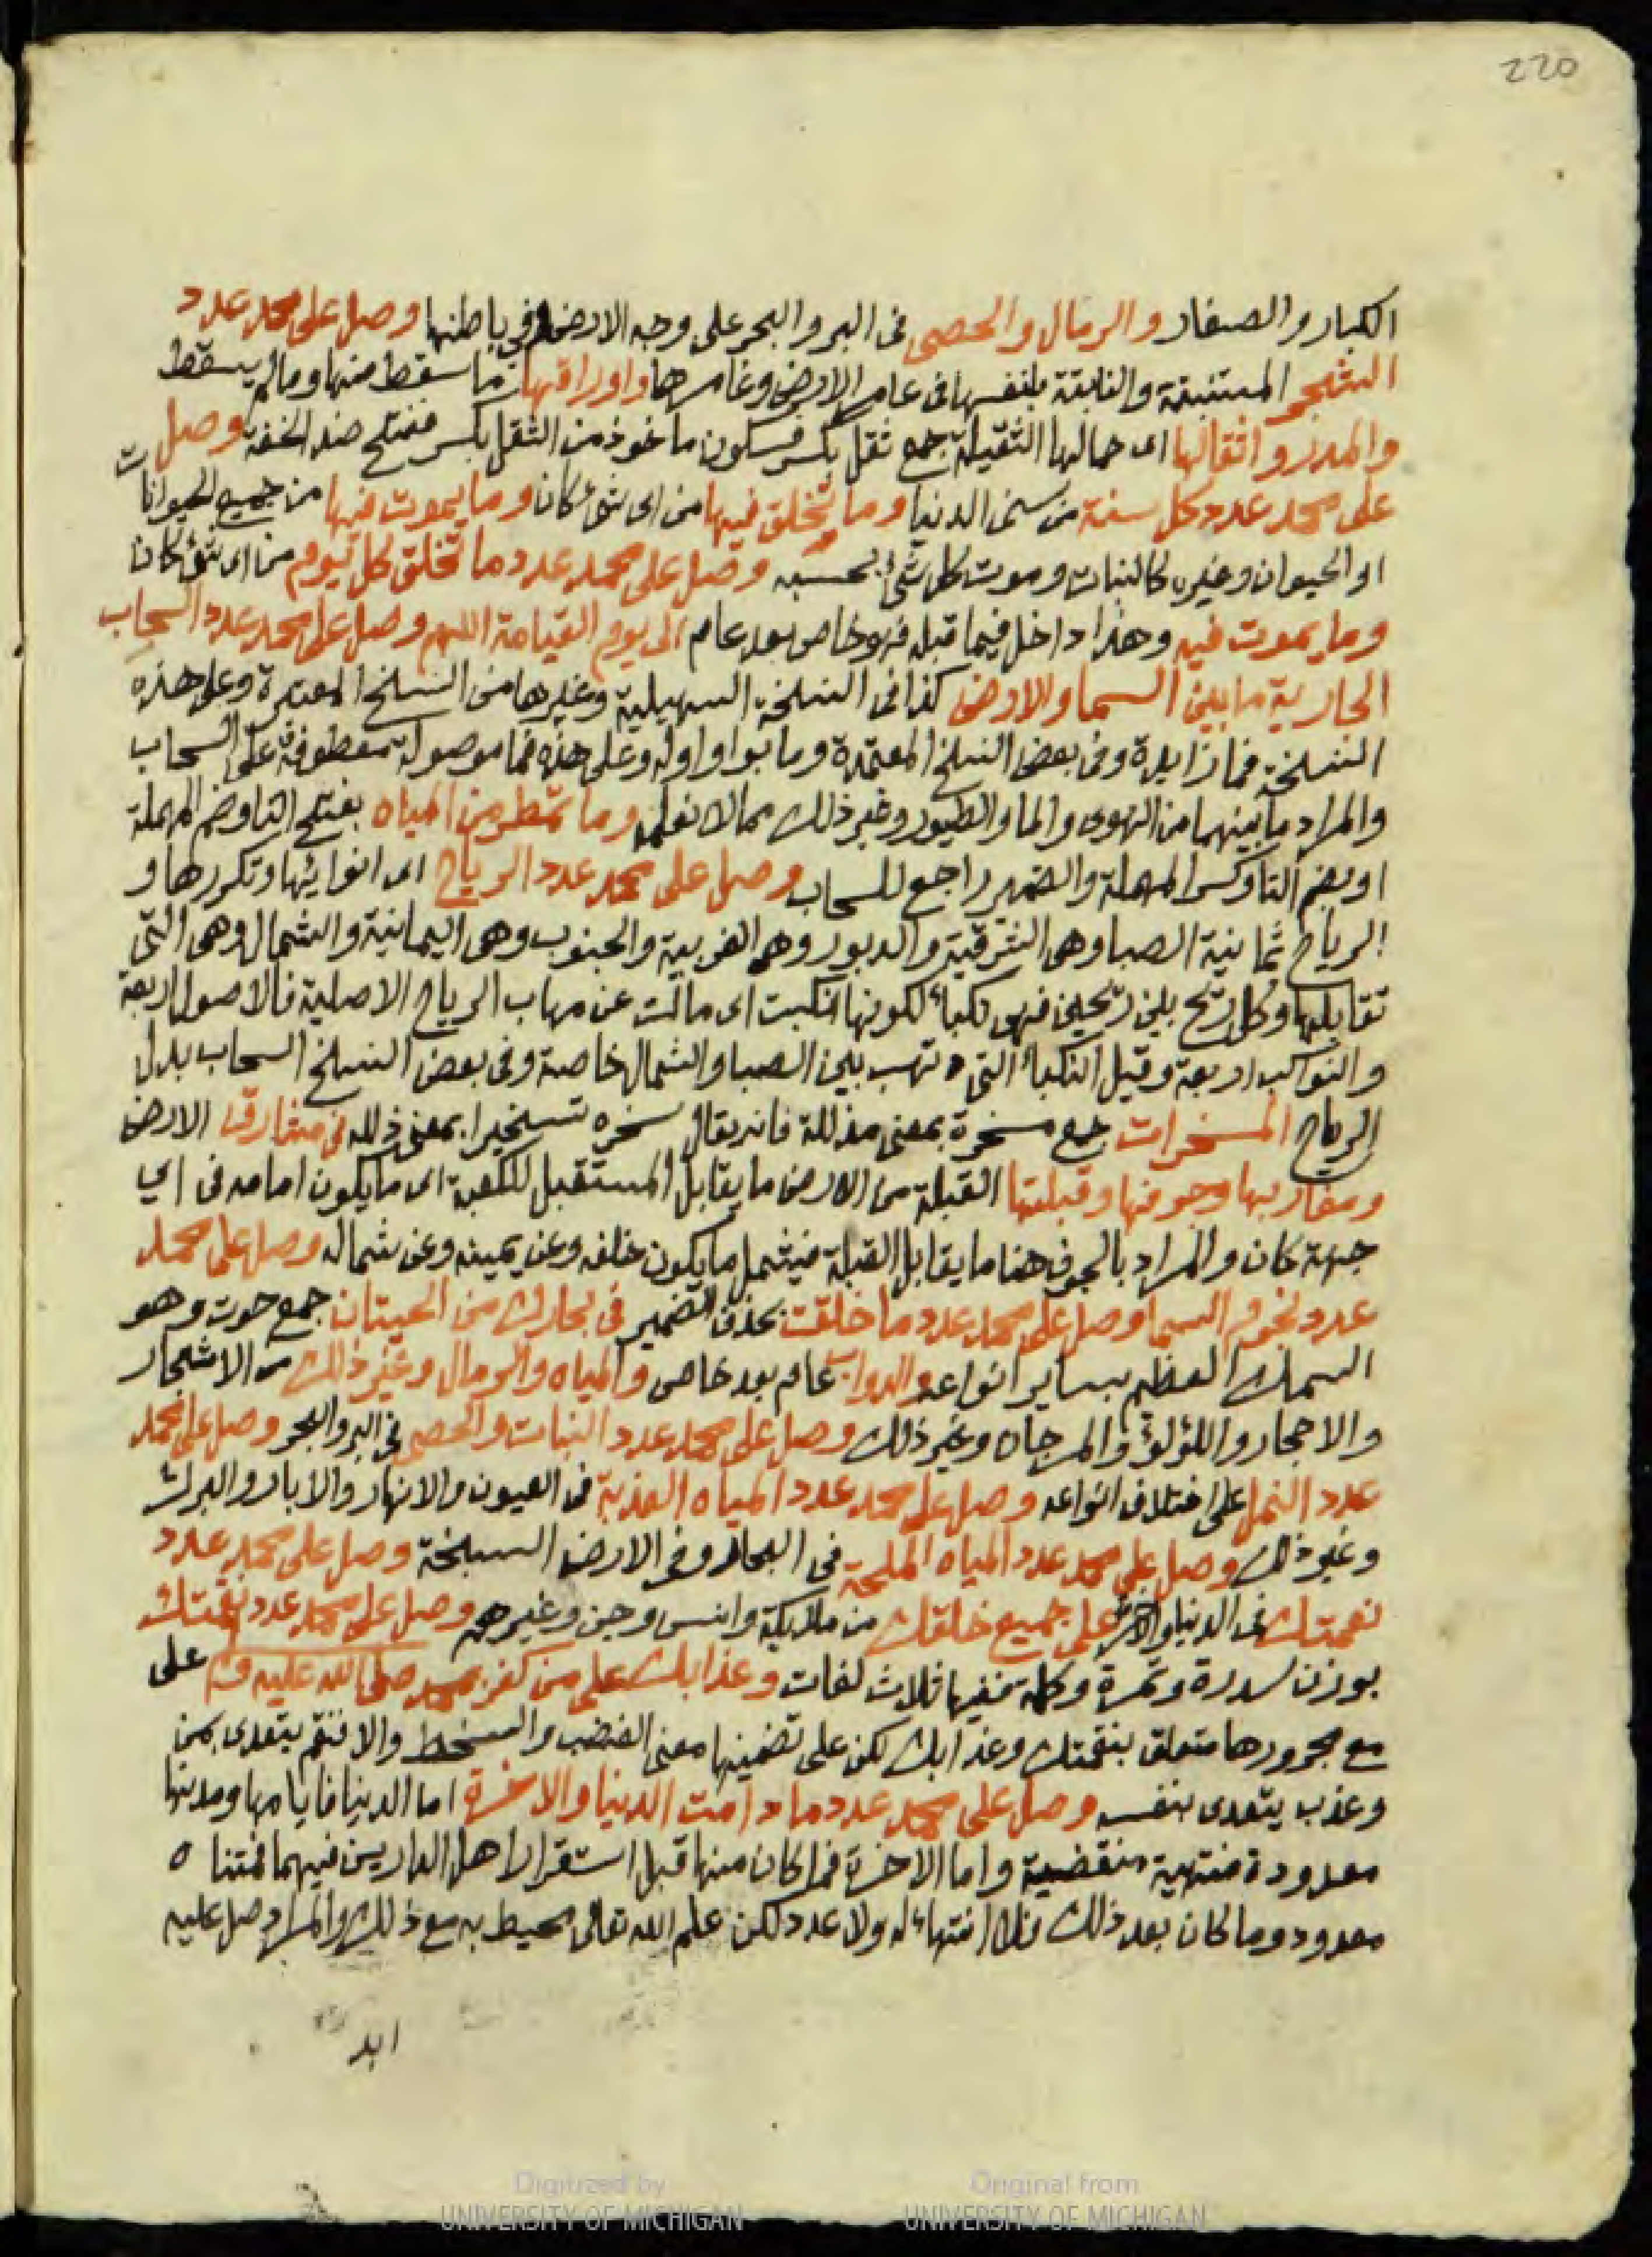 220
الكبار والصغار والرمال والحصى فى البر والبحر على وجه الارض وفي باطنها وصل على محمد عدد
الشجر المستنبتة والنابتة بنفسها فى عامر الارض وغامرها واوراقها ما سقط منها وما لم يسقط
والمدر واثقالها اى حمالها الثقيلة جمع ثقل بكسر فسكون ماخوذ من الثقل بكسر ففتح ضد الخفة وصل
على محمد عدد كل سنة من سنى الدنيا وما تخلق فيها من اى شئ كان وما يموت فيها من جميع الحيوانات
او الحيوان وغيره كالنبات وموت كل شئ بحسبه وصل على محمد عدد ما تخلق كل يوم من اى شئ كان
وما يموت فيه وهذا داخل فيما قبله فهو خاص بعد عام الى يوم القيامة اللهم وصل على محمد عدد السحاب
الجارية ما بين السما والارض كذا فى النسخة السهيلية وغيرها من النسخ المعتبرة وعلى هذه
النسخة فما زايدة وفى بعض النسخ المعتمدة وما بواو اوله وعلى هذه فما موصولة معطوفة على السحاب
والمراد ما بينهما من الهوى والما والطيور وغير ذلك مما لا نعلمه وما تمطر من المياه بفتح التا وضم المهملة
او بضم التا وكسر المهملة والضمير راجع للسحاب وصل على محمد عدد الرياح اى انوائها وتكررها و
الرياح ثمانية الصبا وهى الشرقية والدبور وهى الغربية والجنوب وهى اليمانية والشمال وهى التى
تقابلها وكل ريح بين ريحين فهى نكبا لكونها انكبت اى مالت عن مهاب الرياح الاصلية فالاصول اربعة
والنواكب اربعة وقيل النكبا التى تهب بين الصبا والشمال خاصة وفى بعض النسخ السحاب بدل
الرياح المسخرات جمع مسخرة بمعنى مذللة فانه يقال سخره تسخيرا بمعنى ذلله فى مشارق الارض
ومغاربها وجوفها وقبلتها القبلة من الارض ما يقابل المستقبل للكعبة اى ما يكون امامه فى اي
جهة كان والمراد بالجوف هنا ما يقابل القبلة فيشمل ما يكون خلفه وعن يمينه وعن شماله وصل على محمد
عدد نجوم السما وصل على محمد عدد ما خلقت بحذف الضمير فى بحارك من الحيتان جمع حوت وهو
السمك العظيم بساير انواعه والدواب عام بعد خاص والمياه والرمال وغير ذلك من الاشجار
والاحجار واللؤلؤ والمرجان وغير ذلك وصل على محمد عدد النبات والحصى فى البر والبحر وصل على محمد
عدد النمل على اختلاف انواعه وصل على محمد عدد المياه العذبة فى العيون والانهار والابار والبرك
وغير ذلك وصل على محمد عدد المياه الملحة فى البحار وفى الارض السبخة وصل على محمد عدد
نعمتك فى الدنيا والاخرة على جميع خلقك من ملايكة وانس وجن وغيرهم وصل على محمد عدد نقمتك
بوزن سدرة وتمرة وكلمة ففيها ثلاث لغات وعذابك على من كفر بمحمد صلى الله عليه وسلم على
مع مجرورها متعلق بنقمتك وعذابك لكن على تضمينها معنى الغضب والسخط والا فنقم يتعدى بمن
وعذب يتعدى بنفسه وصل على محمد عدد ما دامت الدنيا والاخرة اما الدنيا فايامها ومدتها
معدودة منتهية منقضية واما الاخرة فما كان منها قبل استقرار اهل الدارين فيهما فمتناه
معدود وما كان بعد ذلك فلا انتهاء له ولا عدد لكن علم الله تعالى محيط به مع ذلك والمراد صل عليه
ابد
Digitized by
UNIVERSITY OF MICHIGAN
Original from
UNIVERSITY OF MICHIGAN